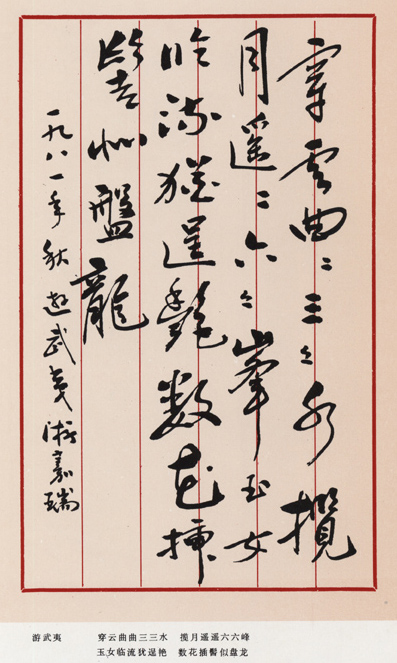 穿雲曲〻三〻水攬
月遥〻六〻峯玉女
临流猶逞艷数花插
髻似盤龍
一九八一年秋遊武夷 嘉瑞
游武夷 穿云曲曲三三水 揽月遥遥六六峰
玉女临流犹逞艳 数花插髻似盘龙